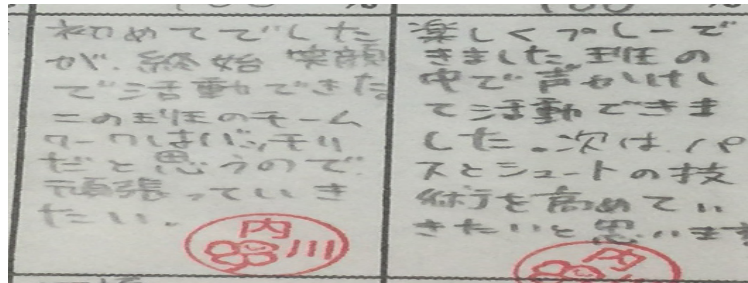 初めてでした
が、終始笑顔
で活動できた
この班のチーム
ワークはバッチリ
だと思うので
頑張っていき
たい.
内
川
楽しくプレーで
きました。班の
中で声かけし
て活動できま
した。次は、パ
スとシュートの技
術を高めてい
きたいと思います
内